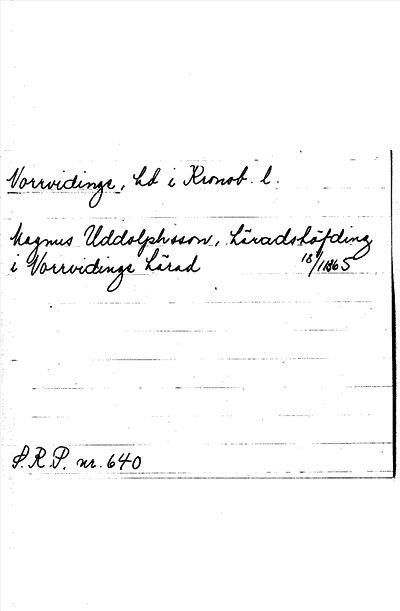 Norrvidinge, hd i Kronob. l.
Magnus Uddolphsson, häradshöfding
i Norrvidinge härad 18/1 1365
S.R.P. nr. 640